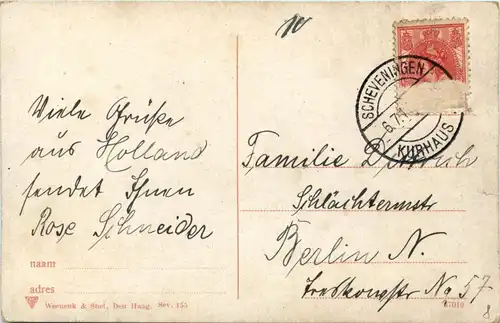 Viele Grüße
aus Holland
sendet Ihnen
Rose Schneider
naam
adres
Weenenk & Snel, Den Haag. Sev. 155
SCHEVENINGEN
KURHAUS
6.7.1
Familie
Schlächtermstr
Berlin N.
No 57
47010
8